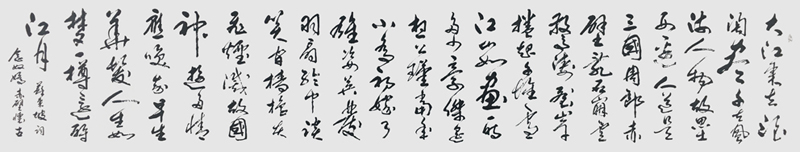 大江東去浪
淘盡千古風
流人物故壘
西邊人道是
三國周郎赤
壁亂石崩雲
驚濤裂岸
捲起千堆雪
江山如畫一時
多少豪傑遙
想公瑾當年
小喬初嫁了
雄姿英發
羽扇綸巾談
笑間檣櫓灰
飛煙滅故國
神遊多情
應笑我早生
華髮人生如
夢一樽還酹
江月
蘇東坡詞
念奴嬌赤壁懷古